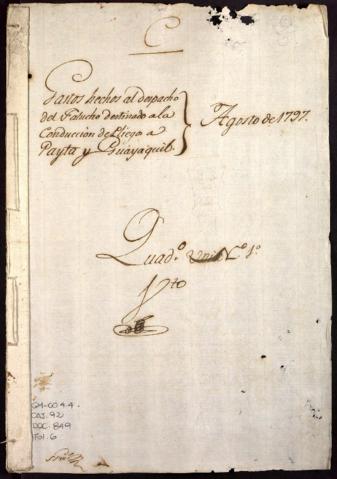 C
Gastos hechos al despacho
del Falucho destinado a la
Conduccion de Pliegos a
Payta y Guayaquil.
Agosto de, 1797.
Quad.º Nº 1º
GM-CO 4.4.
CAJ. 92
DOC. 849
FOL. 6